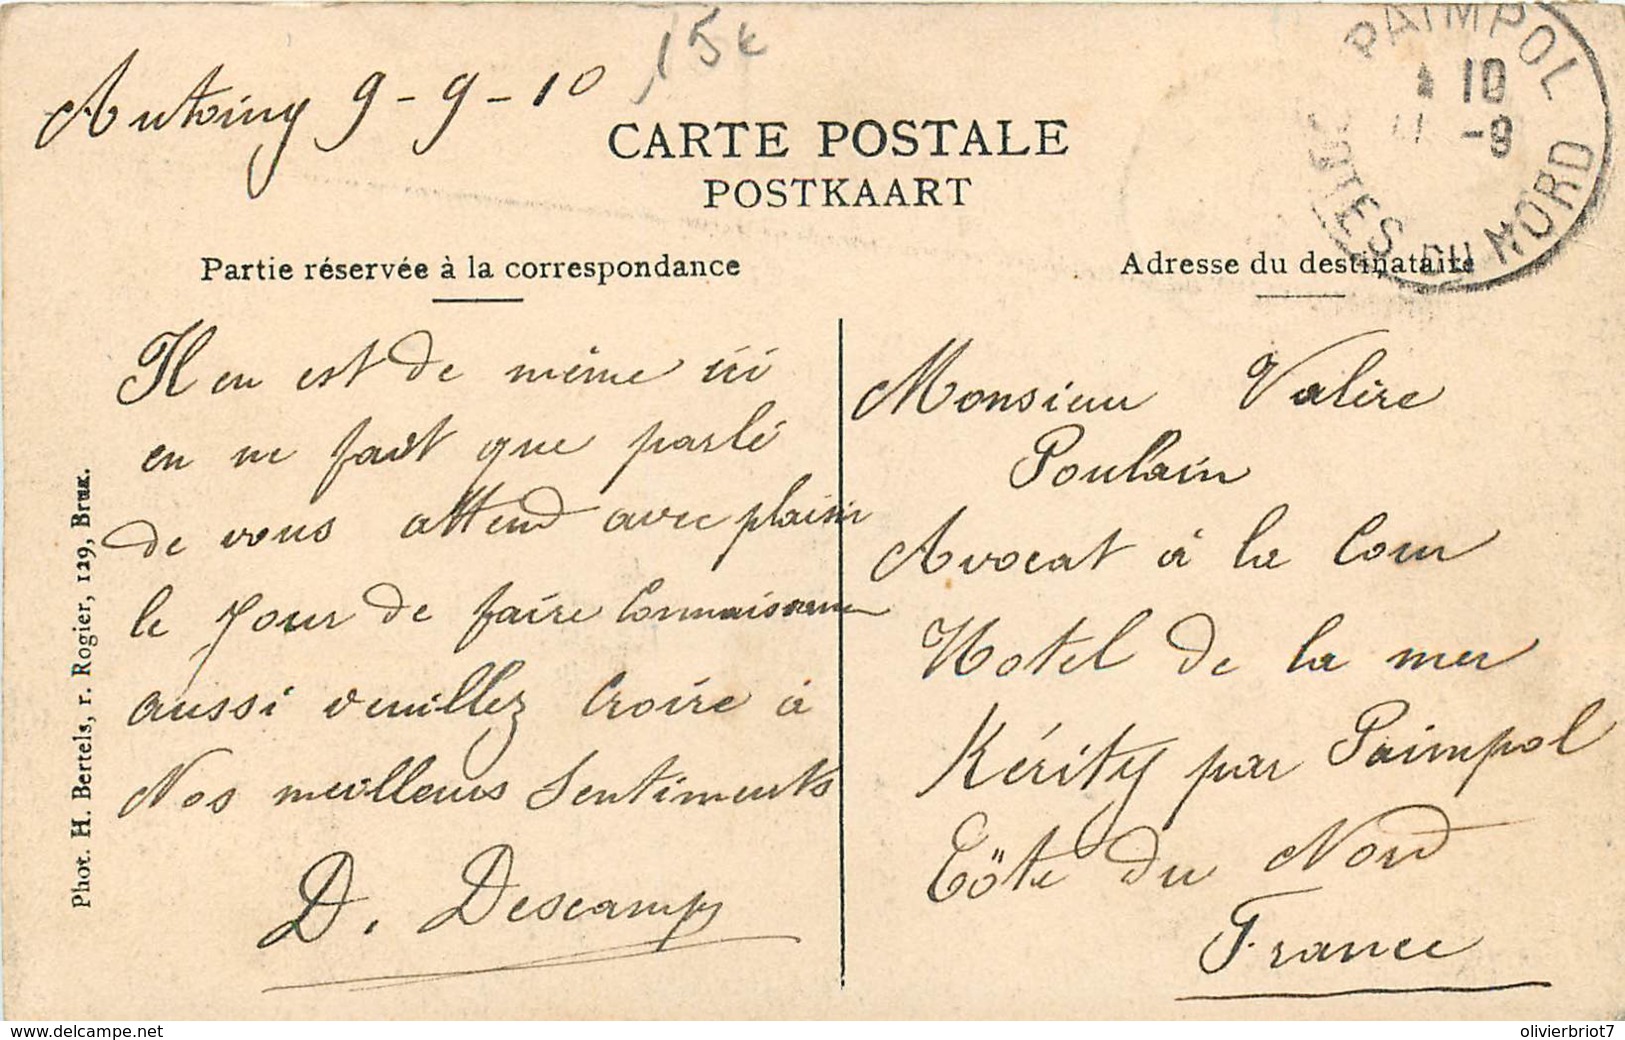 Antoing 9-9-10
15€
CARTE POSTALE
POSTKAART
PAIMPOL
10
11 -9
CÔTES DU NORD
Partie réservée à la correspondance
Adresse du destinataire
Il en est de même ici
en ne fait que parlé
de vous attend avec plaisir
le Jour de faire Connaissance
aussi veuillez Croire à
Nos meilleurs Sentiments
D. Descamps
Monsieur Valère
Poulain
Avocat à la Cour
Hotel de la mer
Kérity par Paimpol
Côte du Nord
France
Phot. H. Bertels, r. Rogier, 129, Brux.
www.delcampe.net
olivierbriot7